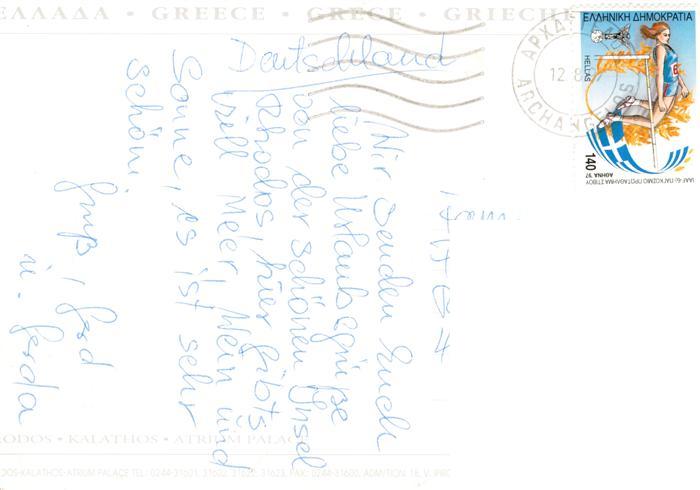 ΕΛΛΑΔΑ • GREECE • GRECE • GRIECHE
ΕΛΛΗΝΙΚΗ ΔΗΜΟΚΡΑΤΙΑ
HELLAS
140
ΑΘΗΝΑ '97
IAAF-6ο ΠΑΓΚΟΣΜΙΟ ΠΡΩΤΑΘΛΗΜΑ ΣΤΙΒΟΥ
ΑΡΧΑ
12 8
ARCHANG
Deutschland
Fam.
Wir senden Euch
liebe Urlaubsgrüße
von der schönen Insel
Rhodos, hier gibts
viel Meer, Wein und
Sonne, es ist sehr
schön!
Gruß, Gerd
u. Gerda
RODOS • KALATHOS • ATRIUM PALAC
DOS-KALATHOS-ATRIUM PALACE TEL: 0244-31601, 31602, 31622, 31623, FAX: 0244-31600, ADMITION: 18, V. IPIRO